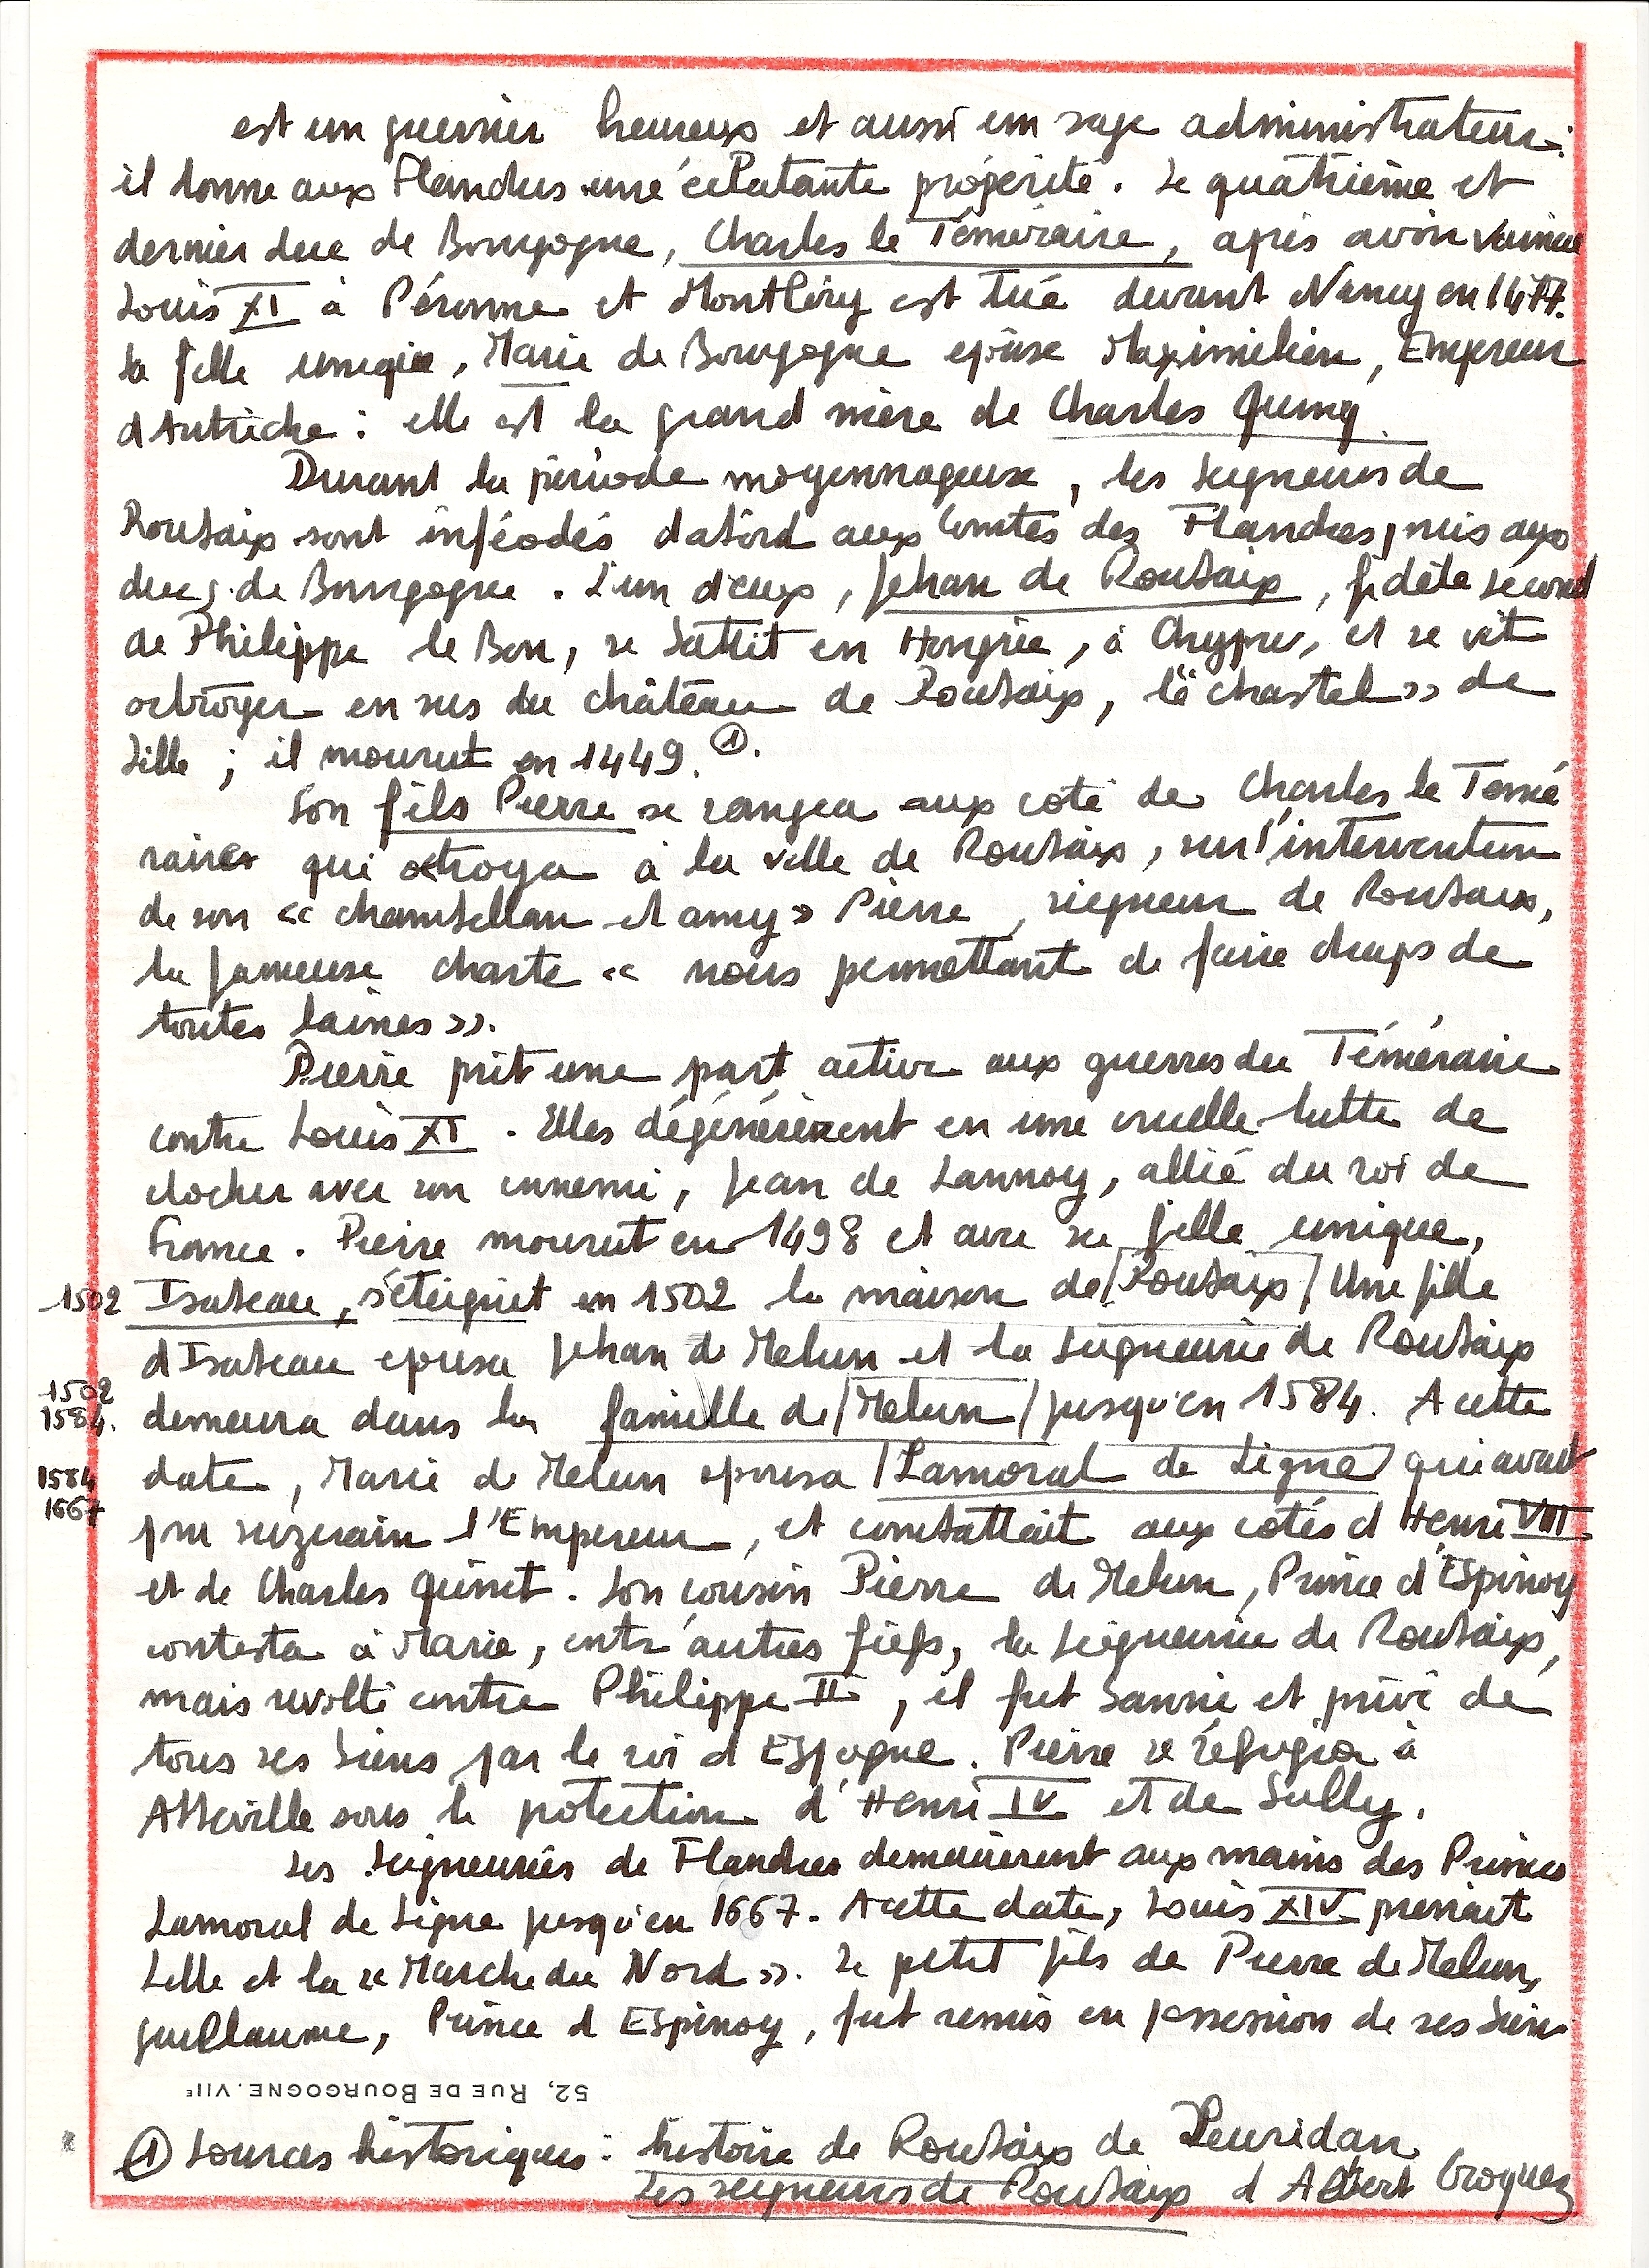 est un guerrier heureux et aussi un sage administrateur :
il donne aux Flandres une éclatante propérité. Le quatrième et
dernier duc de Bourgogne, Charles le Téméraire, après avoir vaincu
Louis XI à Péronne et Montléry est tué devant Nancy en 1477.
Sa fille unique, Marie de Bourgogne epouse Maximilien, Empereur
d'Autriche : elle est la grand mère de Charles Quint.
Durant la période moyennageuse, les seigneurs de
Roubaix sont inféodés d'abord aux Comtes des Flandres, puis aux
ducs de Bourgogne. L'un d'eux, Jehan de Roubaix, fidèle second
de Philippe le Bon, se battit en Hongrie, à Chypre, et se vit
octroyer en sus du château de Roubaix, le "chastel» de
Lille ; il mourut en 1449. ①.
Son fils Pierre se rangea aux coté de Charles le Témé
raire qui octroya à la ville de Roubaix, sur l'intervention
de son « chambellan et amy » Pierre, seigneur de Roubaix,
la fameuse charte « nous permettant de faire draps de
toutes laines ».
Pierre prit une part active aux guerres du Téméraire
contre Louis XI. Elles dégénérèrent en une cruelle lutte de
clocher avec un ennemi, Jean de Lannoy, allié du roi de
France. Pierre mourut en 1498 et avec sa fille unique,
1502 Isabeau, s'éteignit en 1502 la maison de /Roubaix/ Une fille
d'Isabeau epousa Jehan de Melun et la seigneurie de Roubaix
1502
1584. demeura dans la famille de /Melun/ jusqu'en 1584. A cette
1584 date, Marie de Melun epousa /Lamoral de Ligne/ qui avait
1667 pour suzerain l'Empereur, et combattait aux cotés d'Henri VIII
et de Charles Quint. Son cousin Pierre de Melun, Prince d'Espinoy
contesta à Marie, entr'autres fiefs, la seigneurie de Roubaix,
mais revolté contre Philippe II, il fut banni et privé de
tous ses biens par le roi d'Espagne. Pierre se réfugia à
Abbeville sous la potection d'Henri IV et de Sully.
Les Seigneuries de Flandres demeurèrent aux mains des Princes
Lamoral de Ligne jusqu'en 1667. A cette date, Louis XIV prenait
Lille et la « Marche du Nord ». Le petit fils de Pierre de Melun,
Guillaume, Prince d'Espinoy, fut remis en possession de ses biens
52, RUE DE BOURGOGNE. VIIᵉ
① Sources historiques : histoire de Roubaix de Leuridan
Les seigneurs de Roubaix d'Albert Croquez